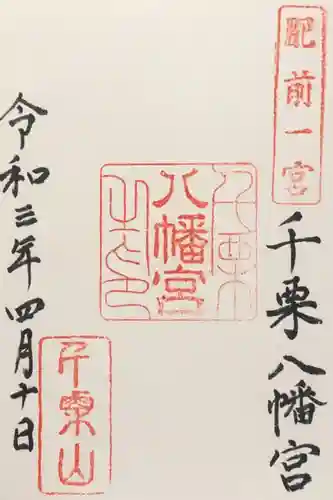 肥前一宮
千栗八幡宮
千栗
八幡宮
令和三年四月十日
千栗山